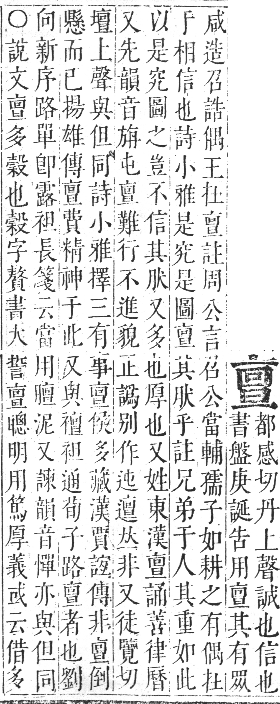 亶
都感切丹上聲誠也信也
書盤庚誕告用亶其有眾
咸造召誥偶王在亶註周公言召公當輔孺子如耕之有偶在
于相信也詩小雅是究是圖亶其肰乎註兄弟于人其重如此
以是究圖之豈不信其肰又多也厚也又姓東漢亶誦善律曆
又先韻音旃屯亶難行不進貌正譌別作迍邅𠀤非又徒覽切
壇上聲與但同詩小雅擇三有事亶侯多藏漢賈誼傳非亶倒
懸而已揚雄傳亶費精神于此又與襢袒通荀子路亶者也劉
向新序路單卽露袒長箋云當用膻泥又諫韻音憚亦與但同
〇說文亶多穀也穀字贅書大誓亶聰明用篤厚義或云借多